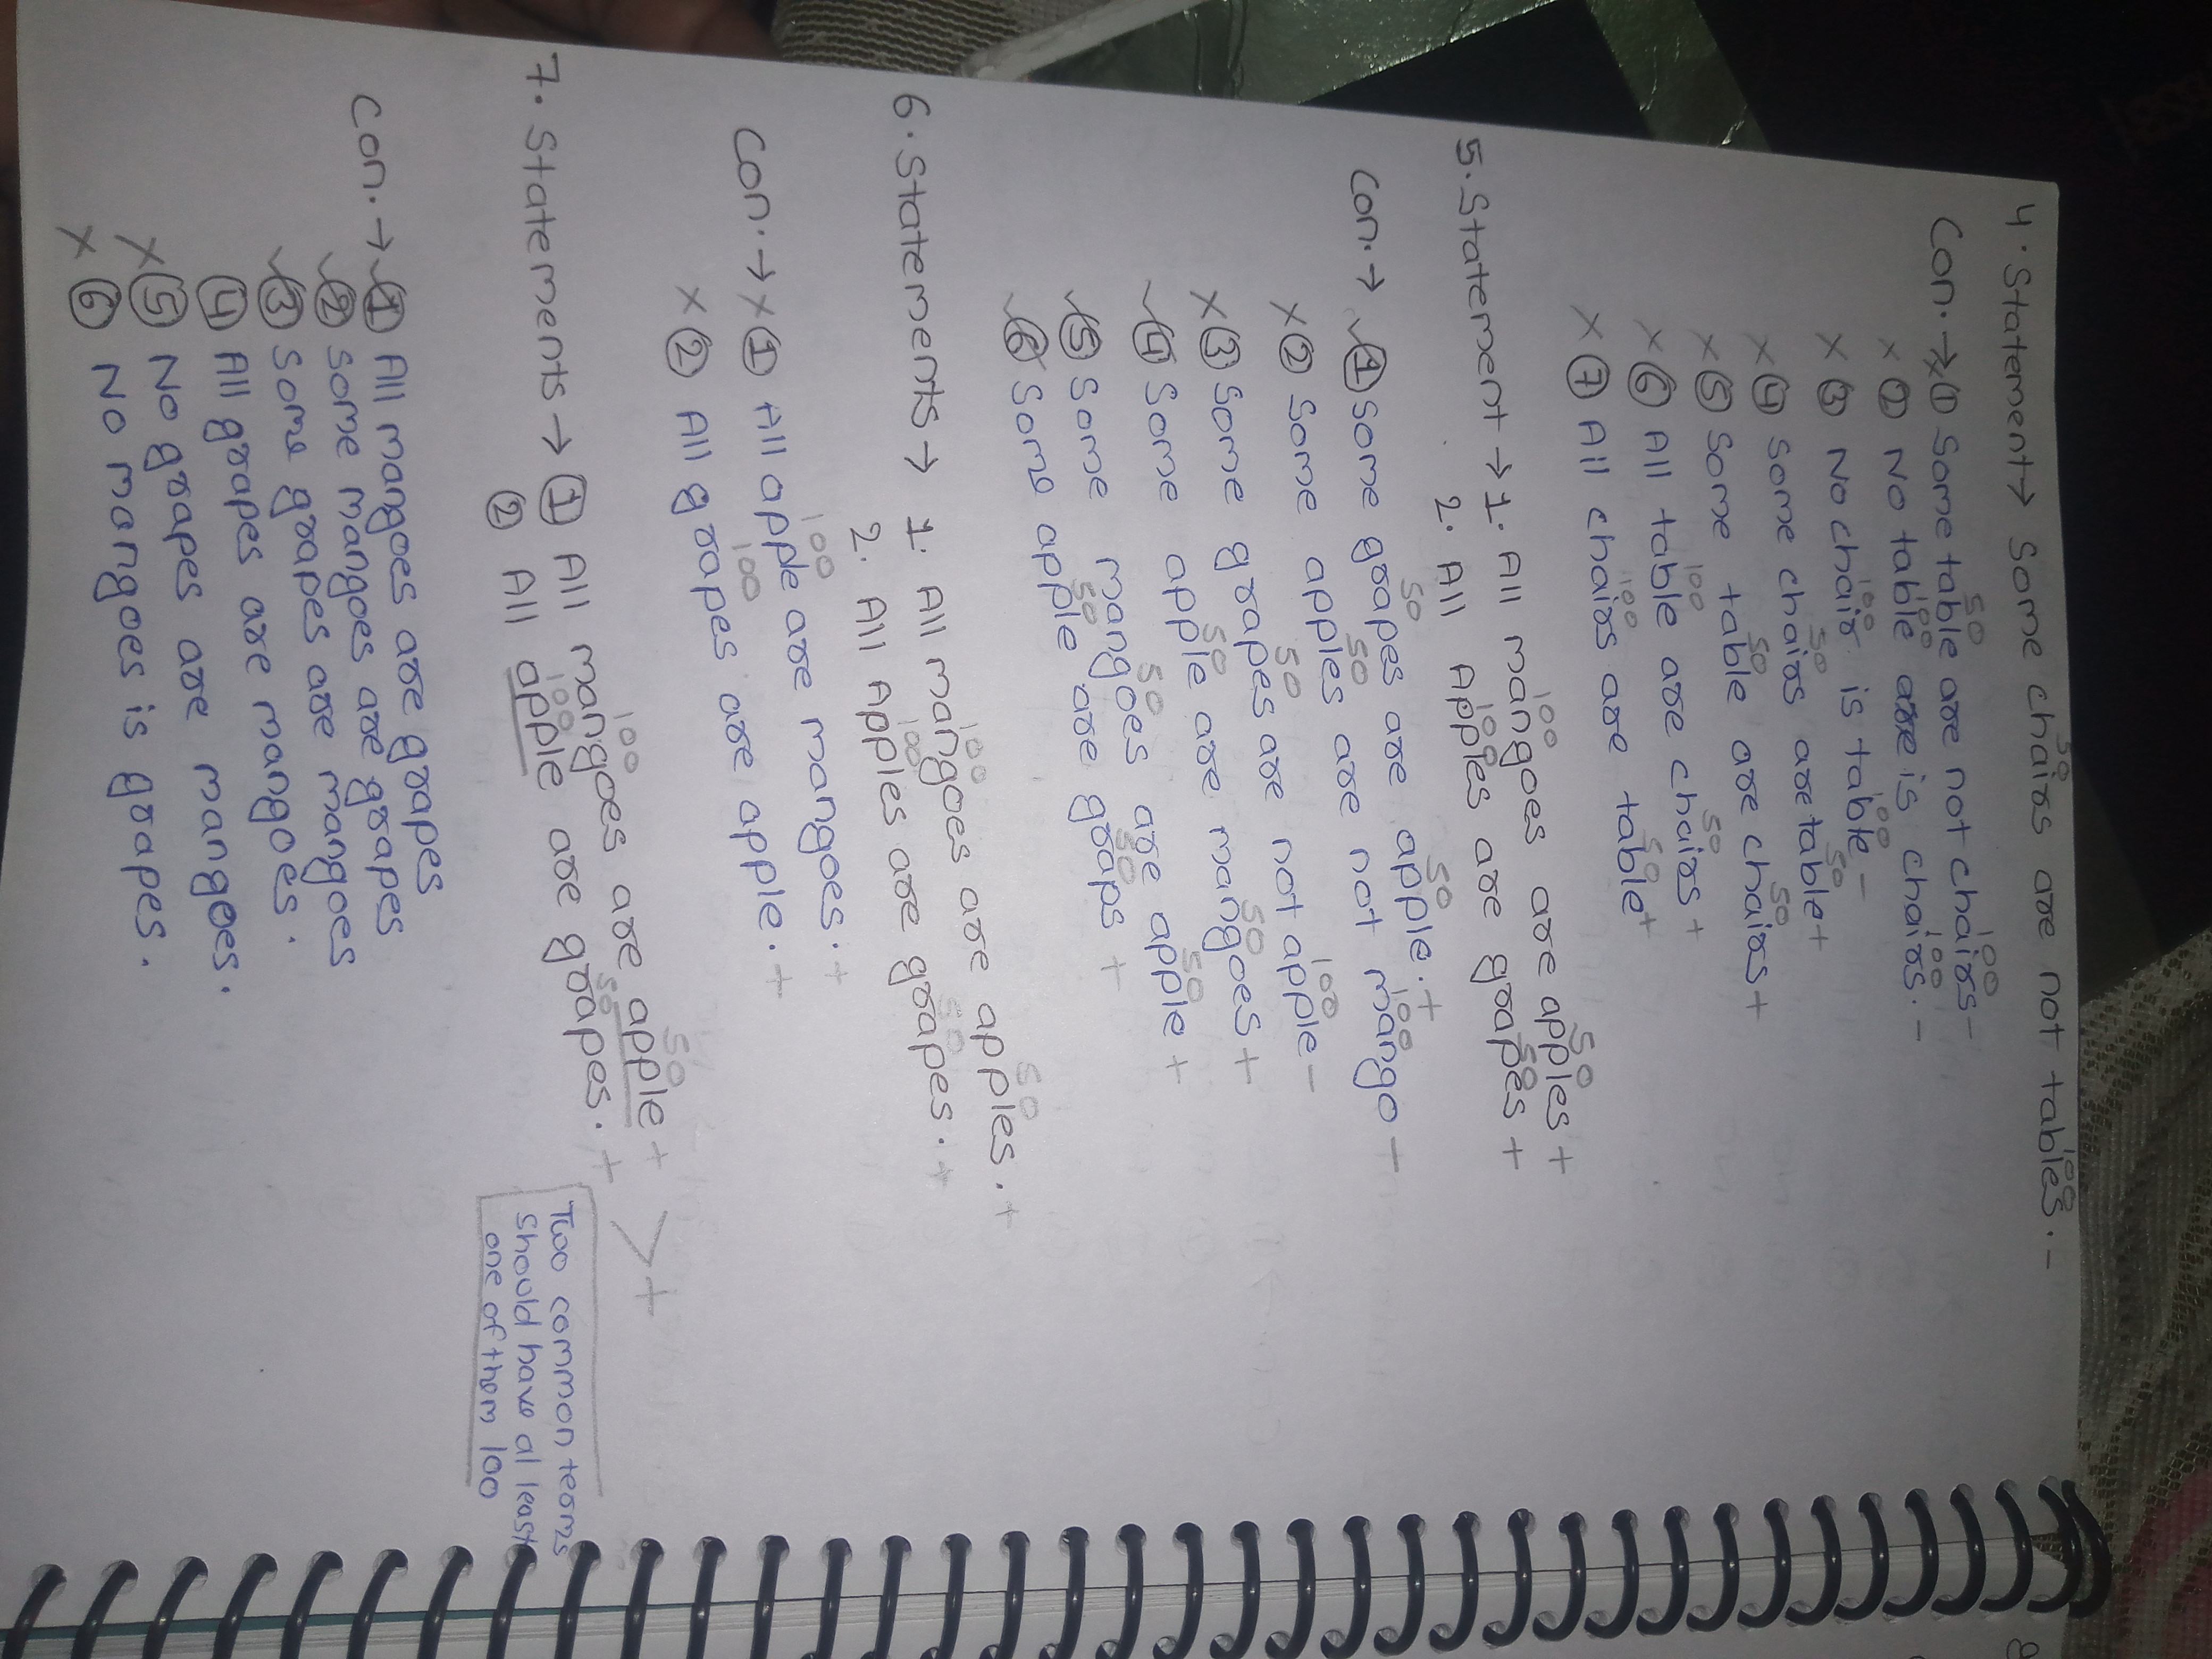 4. Statement → Some chairs are not tables. -
50 100
Con. → × ① Some table are not chairs -
50 100
× ② No table is chairs. -
100 100
× ③ No chair is table -
100 100
× ④ Some chairs are table +
50 50
× ⑤ Some table are chairs +
50 50
× ⑥ All table are chairs +
100 50
× ⑦ All chairs are table +
100 50
5. Statement → 1. All mangoes are apples +
100 50
2. All Apples are grapes +
100 50
Con. → ✓ ① Some grapes are apple. +
50 50
× ② Some apples are not mango -
50 100
× ③ Some grapes are not apple -
50 100
✓ ④ Some apple are mangoes +
50 50
✓ ⑤ Some mangoes are apple +
50 50
✓ ⑥ Some apple are graps +
50 50
6. Statements → 1. All mangoes are apples. +
100 50
2. All Apples are grapes. +
100 50
Con. → × ① All apple are mangoes. +
100
× ② All grapes are apple. +
100
7. Statements → ① All mangoes are apple +
100 50
② All apple are grapes. +
100 50
> +
Two common terms
should have at least
one of them 100
Con. → ✓ ① All mangoes are grapes
✓ ② Some mangoes are grapes
✓ ③ Some grapes are mangoes
④ All grapes are mangoes.
× ⑤ No grapes are mangoes.
× ⑥ No mangoes is grapes.
8